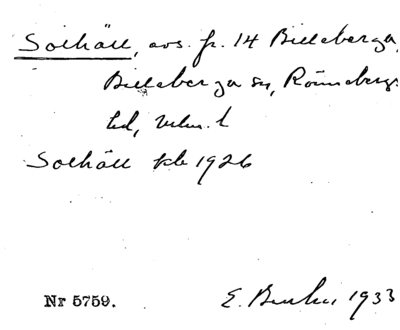 Solhäll, avs. fr. 14 Billeberga,
Billeberga sn, Rönnebergs
hd, Malm. l
Solhäll kb 1926
Nr 5759. E. 1933